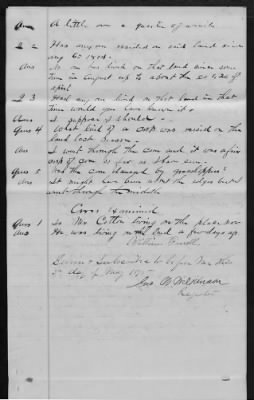 Ans A little over a quarter of a mile
Q 2 Has any one resided on said land since
Ans No one has lived on that land since some
time in August up to about the 20 of
April
Q 3 Had any one lived on that land in that
time would you have known it
Ans I suppose I should
Ques 4 What kind of a crop was raised on the
land last season
Ans I went through the corn and it was a fair
crop of corn as far as I then saw
Ques 5 Was the corn damaged by grasshoppers
Ans It might have been about the edges but I
went through the middle
Cross examined
Ques 1 Is Mr Cotton living on the place now
Ans He was living on the land a few days ago
William
Sworn & Subscribed to before me this
5th day of May 187
Geo. W. Wilkinson
Register